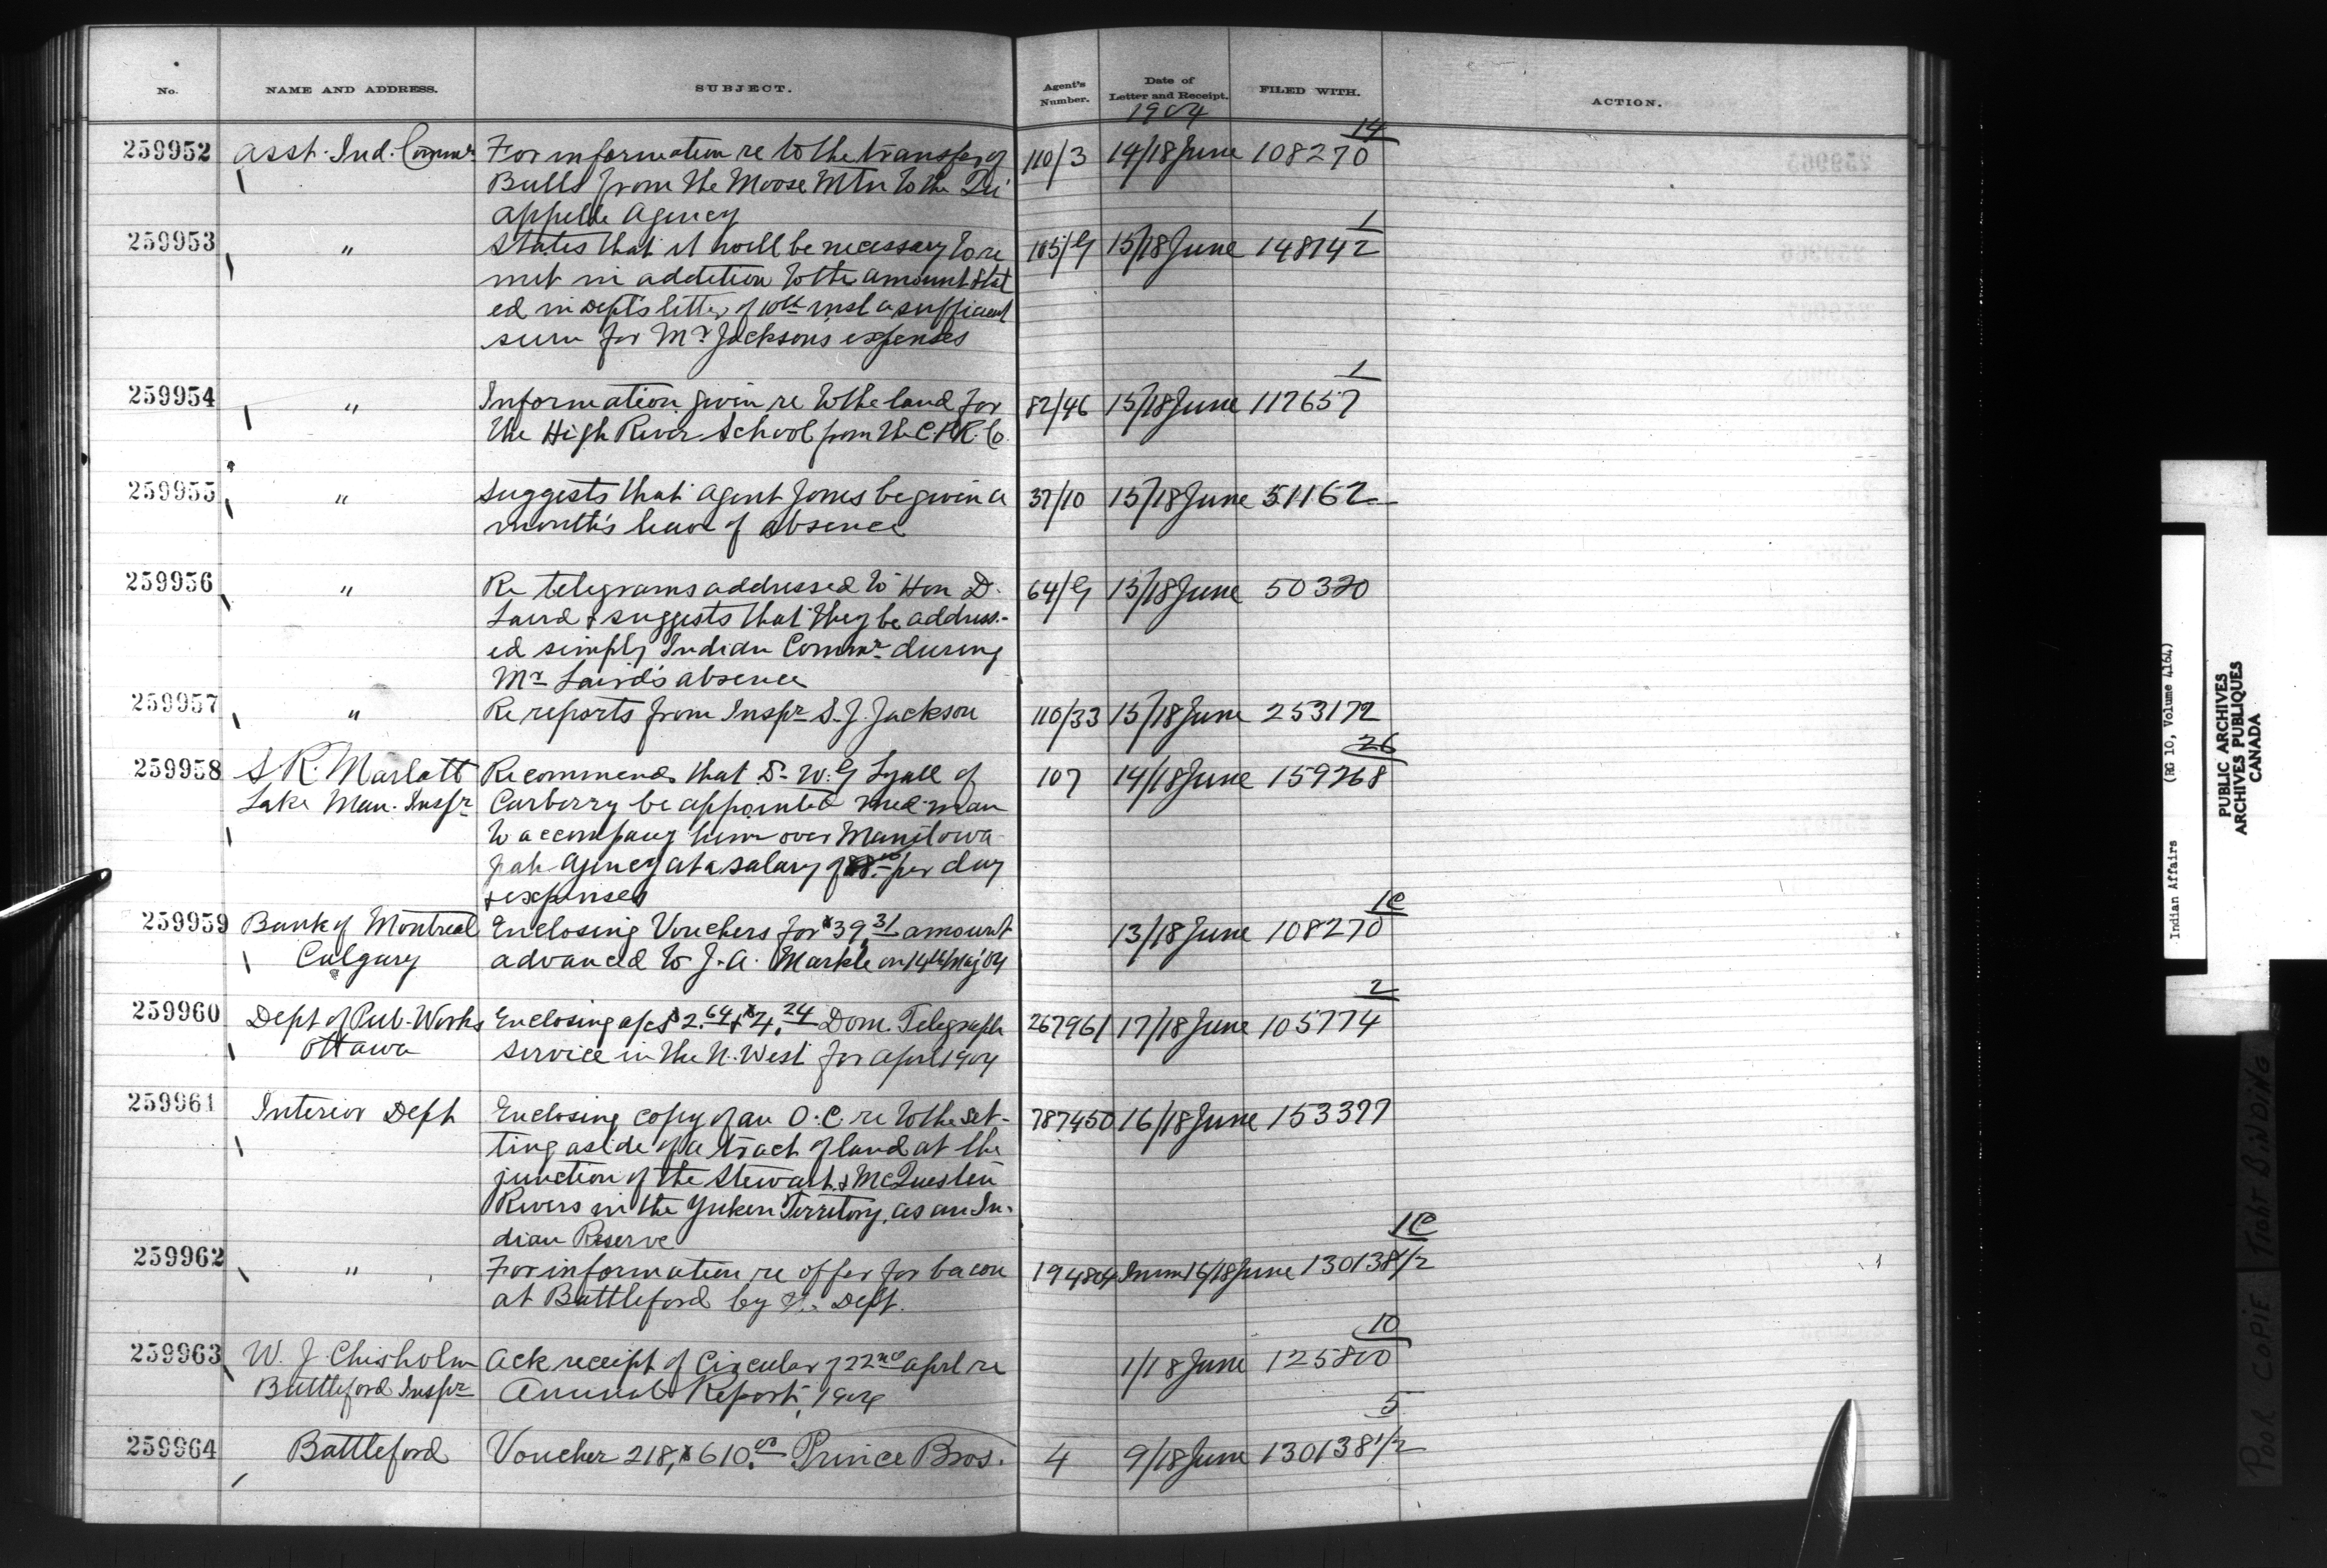 No. NAME AND ADDRESS. SUBJECT. Agent's Number. Date of Letter and Receipt. FILED WITH. ACTION.
1904
14
259952 Asst. Ind. Commr For information re to the transfer of 110/3 14/18 June 108270
Bulls from the Moose Mtn to the Qu'
Appelle Agency
1
259953 " States that it will be necessary to re 105/G 15/18 June 148142
mit in addition to the amount stat
ed in Dept's letter of 10th inst a sufficient
sum for Mr Jackson's expenses
1
259954 " Information given re to the land for 82/46 15/18 June 117657
the High River School from the C.P.R. Co.
259955 " Suggests that Agent Jones be given a 37/10 15/18 June 51162
month's leave of absence
259956 " Re telegrams addressed to Hon D. 64/G 15/18 June 50320
Laird & suggests that they be address-
ed simply Indian Commr during
Mr Laird's absence
259957 " Re reports from Inspr S. J. Jackson 110/33 15/18 June 253172
26
259958 S R. Marlatt Recommends that Dr W. G Lyall of 107 14/18 June 159268
Lake Man. Inspr Carberry be appointed med. man
to accompany him over Manitowa
pah Agency at a salary of $8.00 per day
& expenses
1C
259959 Bank of Montreal Enclosing Vouchers for $39.31 amount 13/18 June 108270
Calgary advanced to J. A. Markle on 14th May '04
2
259960 Dept of Pub. Works Enclosing a/cs $2.64 & $4.24 Dom. Telegraph 267961 17/18 June 105774
Ottawa service in the N. West for April 1904
259961 Interior Dept Enclosing copy of an O. C. re to the set- 787450 16/18 June 153377
ting aside of a tract of land at the
junction of the Stewart & McQuesten
Rivers in the Yuken Territory, as an In-
dian Reserve
1C
259962 " For information re offer for bacon 194804 16/18 June 130138 1/2
at Battleford by Dept.
10
259963 W. J Chisholm Ack receipt of Circular of 22nd April re 1/18 June 125800
Battleford Inspr Annual Report, 1904
5
259964 Battleford Voucher 218, $610.00 Prince Bros. 4 9/18 June 130138 1/2
Indian Affairs (RG 10, Volume 4164)
PUBLIC ARCHIVES
ARCHIVES PUBLIQUES
CANADA
POOR COPIE TIGHT BINDING